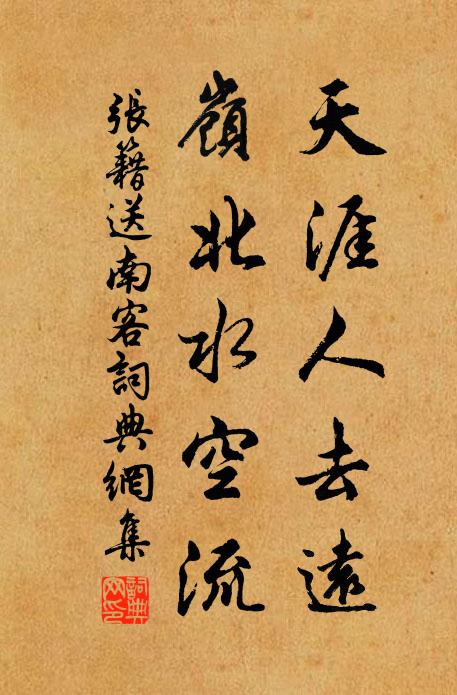 天涯人去遠
嶺北水空流
張籍送南客詞典網集
詞典
网印